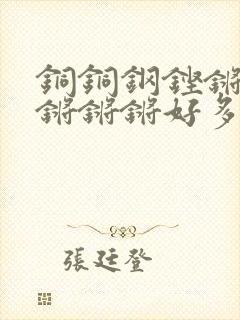 銅銅鋼鏗鏘
鏘鏘鏘好多
張廷登